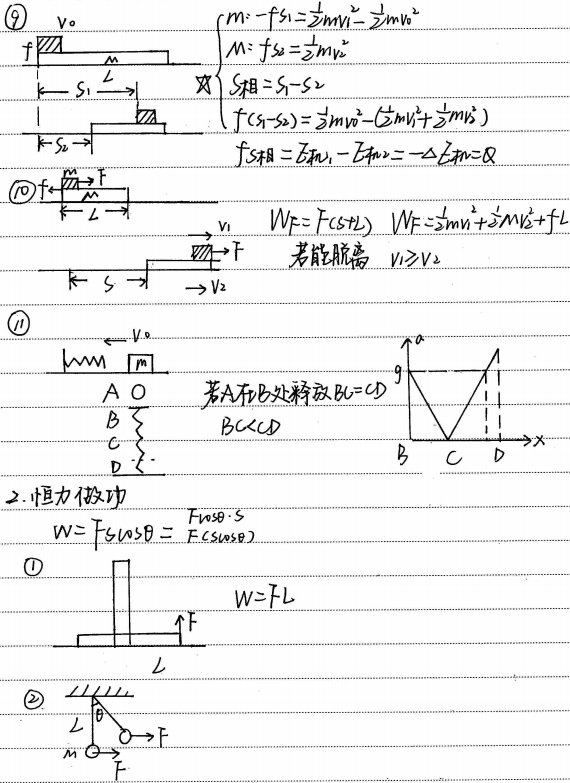 ⑨ v₀
m: -fS₁=½mv₁²-½mv₀²
f M L
M: fS₂=½mv₂²
S₁
☆ S相=S₁-S₂
S₂
f(S₁-S₂)=½mv₀²-(½mv₁²+½mv₂²)
fS相=E机₁-E机₂=-ΔE机=Q
⑩ f m F
M
L
v₁
W_F=F(S+L) W_F=½mv₁²+½Mv₂²+fL
F
若能脱离 v₁≥v₂
S v₂
⑪ v₀
m
A O
B
C
D
若A在B处释放BC=CD
BC<CD
a
g
B C D x
2.恒力做功
W=Fscosθ= Fcosθ·s
F(scosθ)
①
F
W=FL
L
②
θ
L
F
m
F